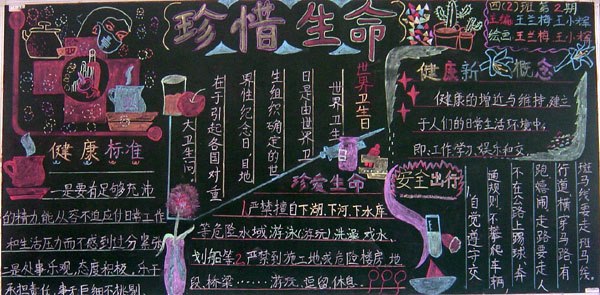 珍惜生命
四(2)班第2期
主编 王兰梅 王小辉
绘画 王兰梅 王小辉
健康标准
一是要有足够充沛
的精力,能从容不迫应付日常工作
和生活压力而不感到过分紧张
二是处事乐观,态度积极,乐于
承担责任,事无巨细不挑剔
世界卫生日
世界卫生
日是由世界卫
生组织确定的世
界性纪念日,目地
在于引起各国对重
大卫生问
健康新概念
健康的增近与维持,建立
于人们的日常生活环境中,
即:工作,学习,娱乐和交
珍爱生命
1.严禁擅自下湖、下河、下水库
等危险水域游泳(游玩)洗澡 戏水、
划船等.2.严禁到施工地或危险楼房、地
段、桥梁……游玩、逗留、休息.
安全出行
1.自觉遵守交
通规则,不攀爬车辆
不在公路上踢球、奔
跑嬉闹,走路要走人
行道,横穿马路有
斑马线要走斑马线.